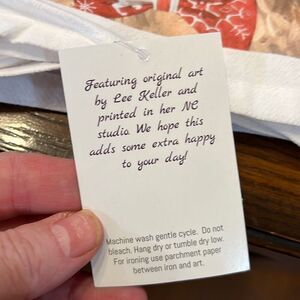 Featuring original art
by Lee Keller and
printed in her NC
studio. We hope this
adds some extra happy
to your day!
Machine wash gentle cycle. Do not
bleach. Hang dry or tumble dry low.
For ironing use parchment paper
between iron and art.